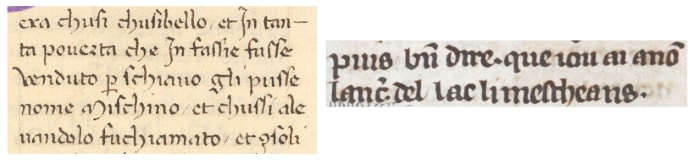 era chusi chusibello, et In tan—
ta pouerta che In fassie fusse
venduto ꝑ schiauo gli pusse
nome Mischino, et chussi ale
uandolo fuchiamato, et ꝯsoli
puis bñ dire. que iou ai anõ
lanc̃. del lac li mescheans.